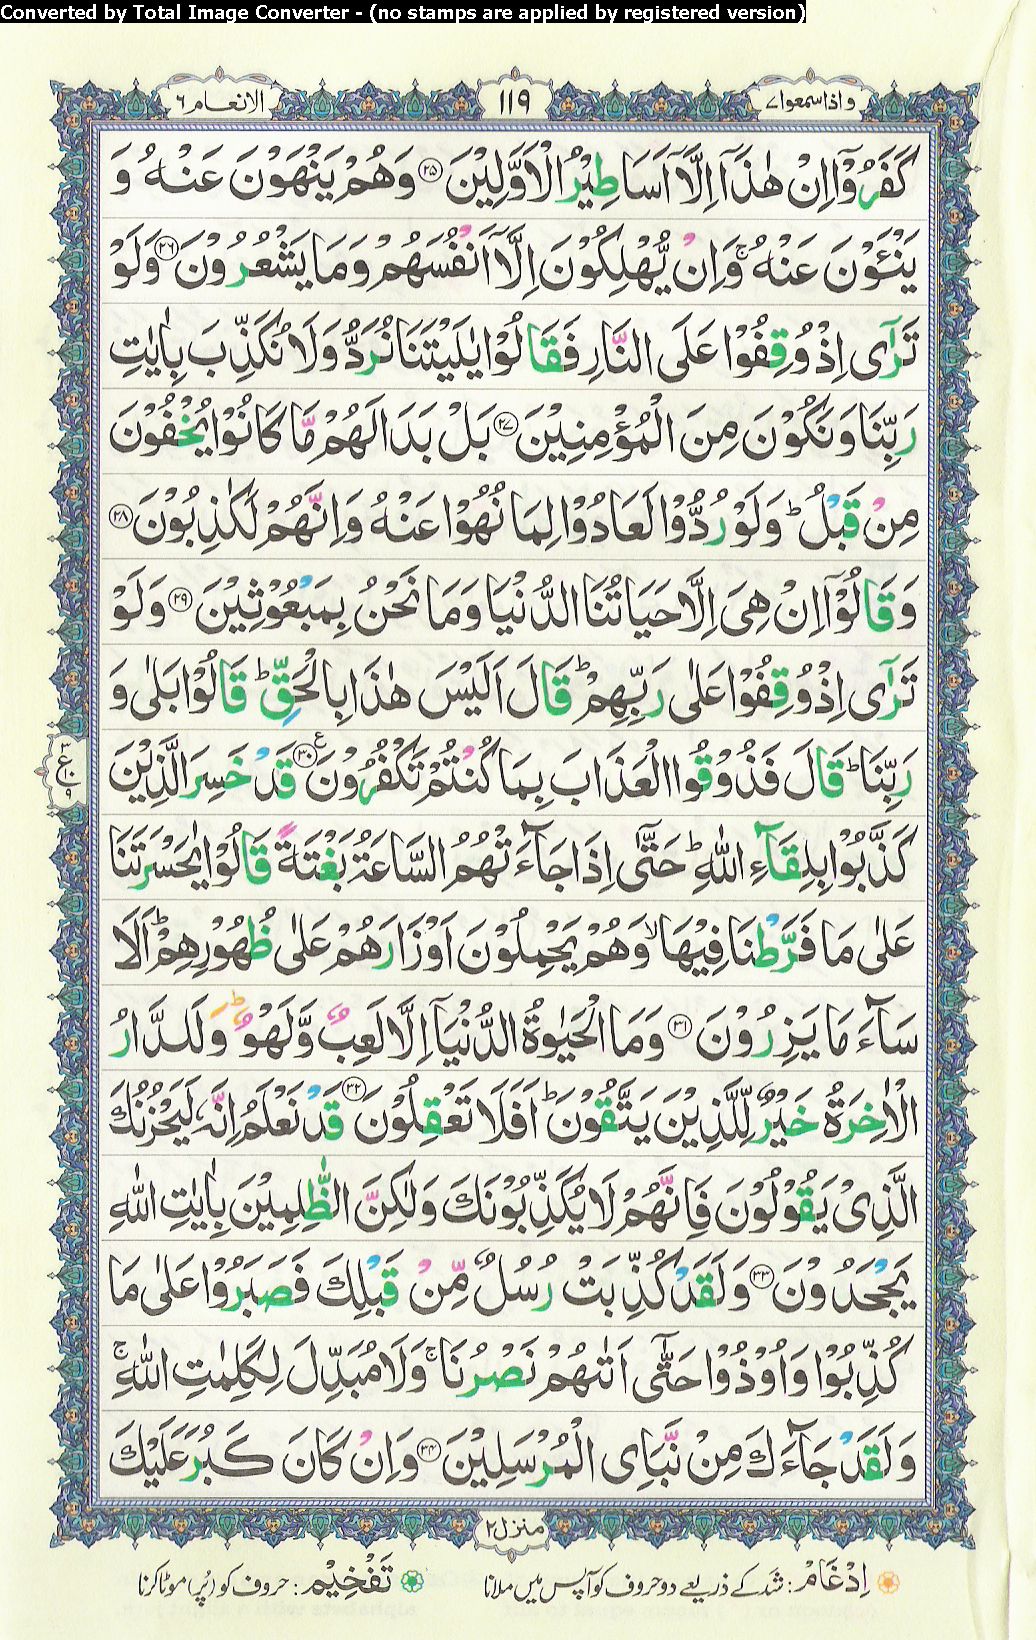 Converted by Total Image Converter - (no stamps are applied by registered version)
و اذا سمعوا ۷
۱۱۹
الانعام ۶
كَفَرُوْۤا اِنْ هٰذَاۤ اِلَّاۤ اَسَاطِيْرُ الْاَوَّلِيْنَ ۲۵ وَهُمْ يَنْهَوْنَ عَنْهُ وَ
يَنْـَٔوْنَ عَنْهُ ۚ وَاِنْ يُّهْلِكُوْنَ اِلَّاۤ اَنْفُسَهُمْ وَمَا يَشْعُرُوْنَ ۲۶ وَلَوْ
تَرٰۤى اِذْ وُقِفُوْا عَلَى النَّارِ فَقَالُوْا يٰلَيْتَنَا نُرَدُّ وَلَا نُكَذِّبَ بِاٰيٰتِ
رَبِّنَا وَنَكُوْنَ مِنَ الْمُؤْمِنِيْنَ ۲۷ بَلْ بَدَا لَهُمْ مَّا كَانُوْا يُخْفُوْنَ
مِنْ قَبْلُ ؕ وَلَوْ رُدُّوْا لَعَادُوْا لِمَا نُهُوْا عَنْهُ وَاِنَّهُمْ لَكٰذِبُوْنَ ۲۸
وَقَالُوْۤا اِنْ هِىَ اِلَّا حَيَاتُنَا الدُّنْيَا وَمَا نَحْنُ بِمَبْعُوْثِيْنَ ۲۹ وَلَوْ
تَرٰۤى اِذْ وُقِفُوْا عَلٰى رَبِّهِمْ ؕ قَالَ اَلَيْسَ هٰذَا بِالْحَقِّ ؕ قَالُوْا بَلٰى وَ
رَبِّنَا ؕ قَالَ فَذُوْقُوا الْعَذَابَ بِمَا كُنْتُمْ تَكْفُرُوْنَ ۳۰ ع قَدْ خَسِرَ الَّذِيْنَ
۳ ع ۱۰ ۹
كَذَّبُوْا بِلِقَآءِ اللّٰهِ ؕ حَتّٰۤى اِذَا جَآءَتْهُمُ السَّاعَةُ بَغْتَةً قَالُوْا يٰحَسْرَتَنَا
عَلٰى مَا فَرَّطْنَا فِيْهَا ۙ وَهُمْ يَحْمِلُوْنَ اَوْزَارَهُمْ عَلٰى ظُهُوْرِهِمْ ؕ اَلَا
سَآءَ مَا يَزِرُوْنَ ۳۱ وَمَا الْحَيٰوةُ الدُّنْيَاۤ اِلَّا لَعِبٌ وَّلَهْوٌ ؕ وَلَلدَّارُ
الْاٰخِرَةُ خَيْرٌ لِّلَّذِيْنَ يَتَّقُوْنَ ؕ اَفَلَا تَعْقِلُوْنَ ۳۲ قَدْ نَعْلَمُ اِنَّهٗ لَيَحْزُنُكَ
الَّذِىْ يَقُوْلُوْنَ فَاِنَّهُمْ لَا يُكَذِّبُوْنَكَ وَلٰكِنَّ الظّٰلِمِيْنَ بِاٰيٰتِ اللّٰهِ
يَجْحَدُوْنَ ۳۳ وَلَقَدْ كُذِّبَتْ رُسُلٌ مِّنْ قَبْلِكَ فَصَبَرُوْا عَلٰى مَا
كُذِّبُوْا وَاُوْذُوْا حَتّٰۤى اَتٰهُمْ نَصْرُنَا ۚ وَلَا مُبَدِّلَ لِكَلِمٰتِ اللّٰهِ ۚ
وَلَقَدْ جَآءَكَ مِنْ نَّبَاِى الْمُرْسَلِيْنَ ۳۴ وَاِنْ كَانَ كَبُرَ عَلَيْكَ
منزل ۲
اِدْغَامْ : شد کے ذریعے دو حروف کو آپس میں ملانا
تَفْخِيْم : حروف کو (پُر) موٹا کرنا